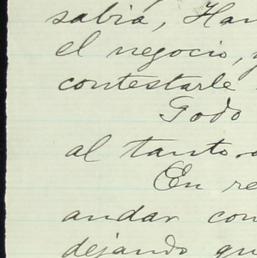 sabia, Han
el negocio, y
contestarle
Todo
al tanto
En re
andar con
dejando qu